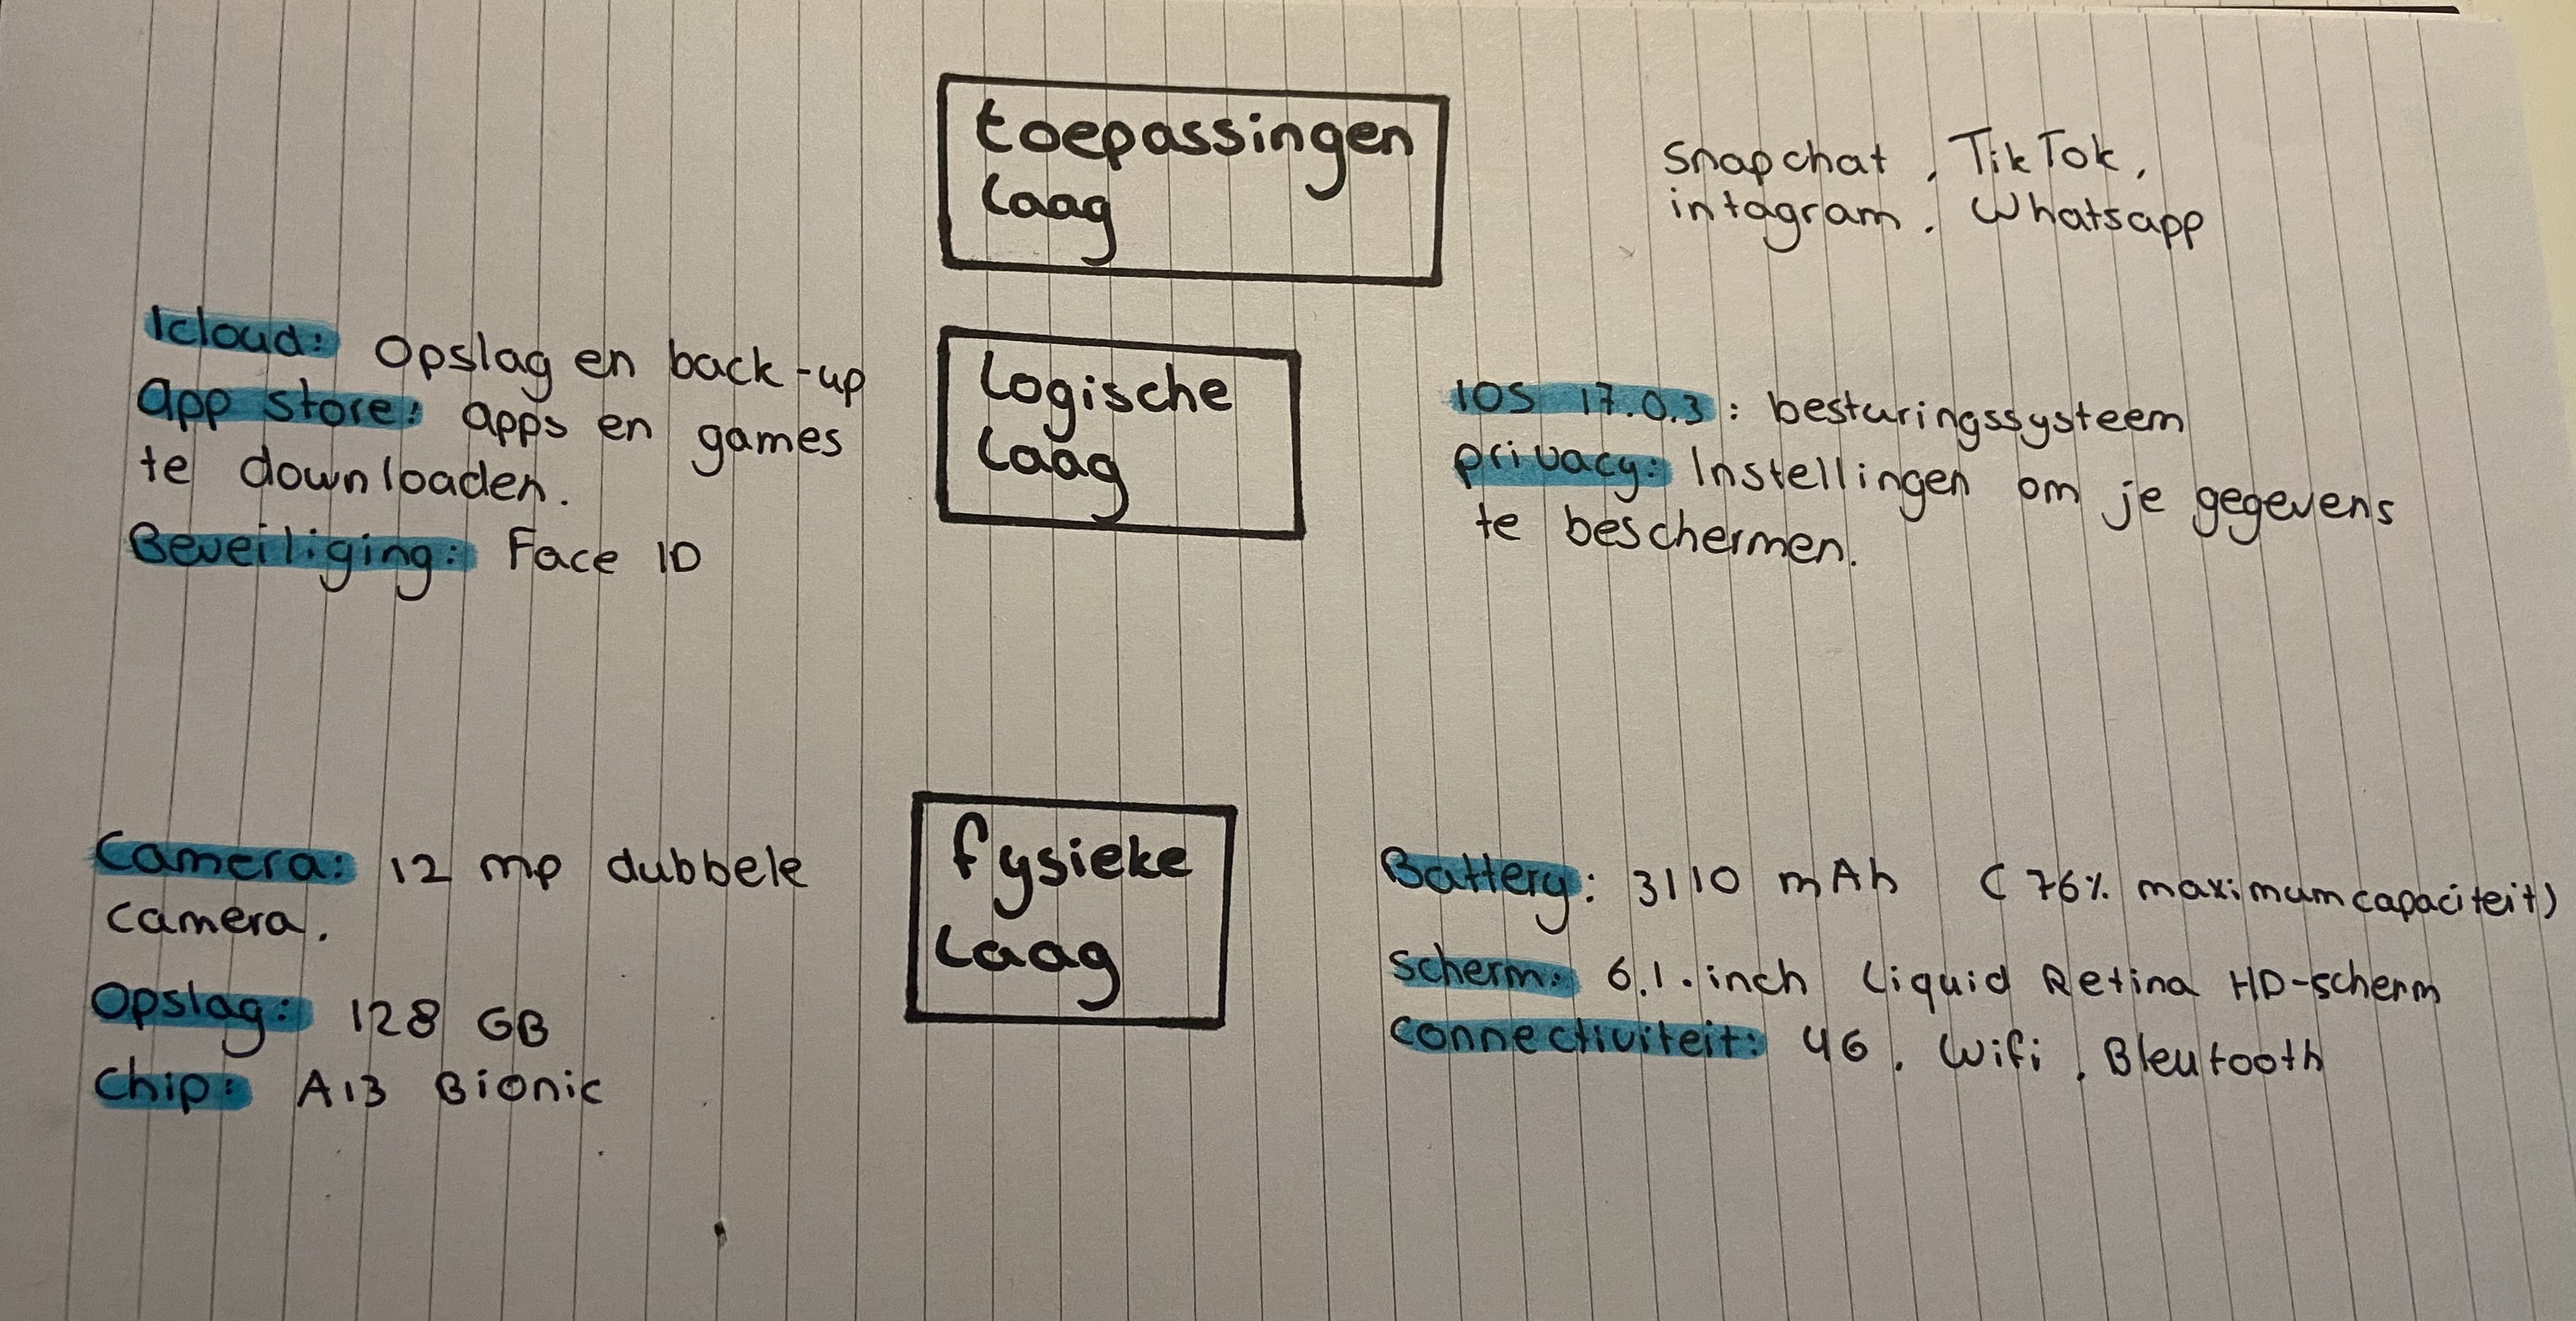 toepassingen
laag
Snapchat, TikTok,
intagram, Whatsapp
Icloud: Opslag en back-up
App store: apps en games
te downloaden.
Beveiliging: Face ID
Logische
laag
IOS 17.0.3: besturingssysteem
privacy: Instellingen om je gegevens
te beschermen.
Camera: 12 mp dubbele
camera.
Opslag: 128 GB
Chip: A13 Bionic
fysieke
laag
Battery: 3110 mAh (76% maximumcapaciteit)
Scherm: 6.1.inch Liquid Retina HD-scherm
Connectiviteit: 4G, Wifi, Bleutooth